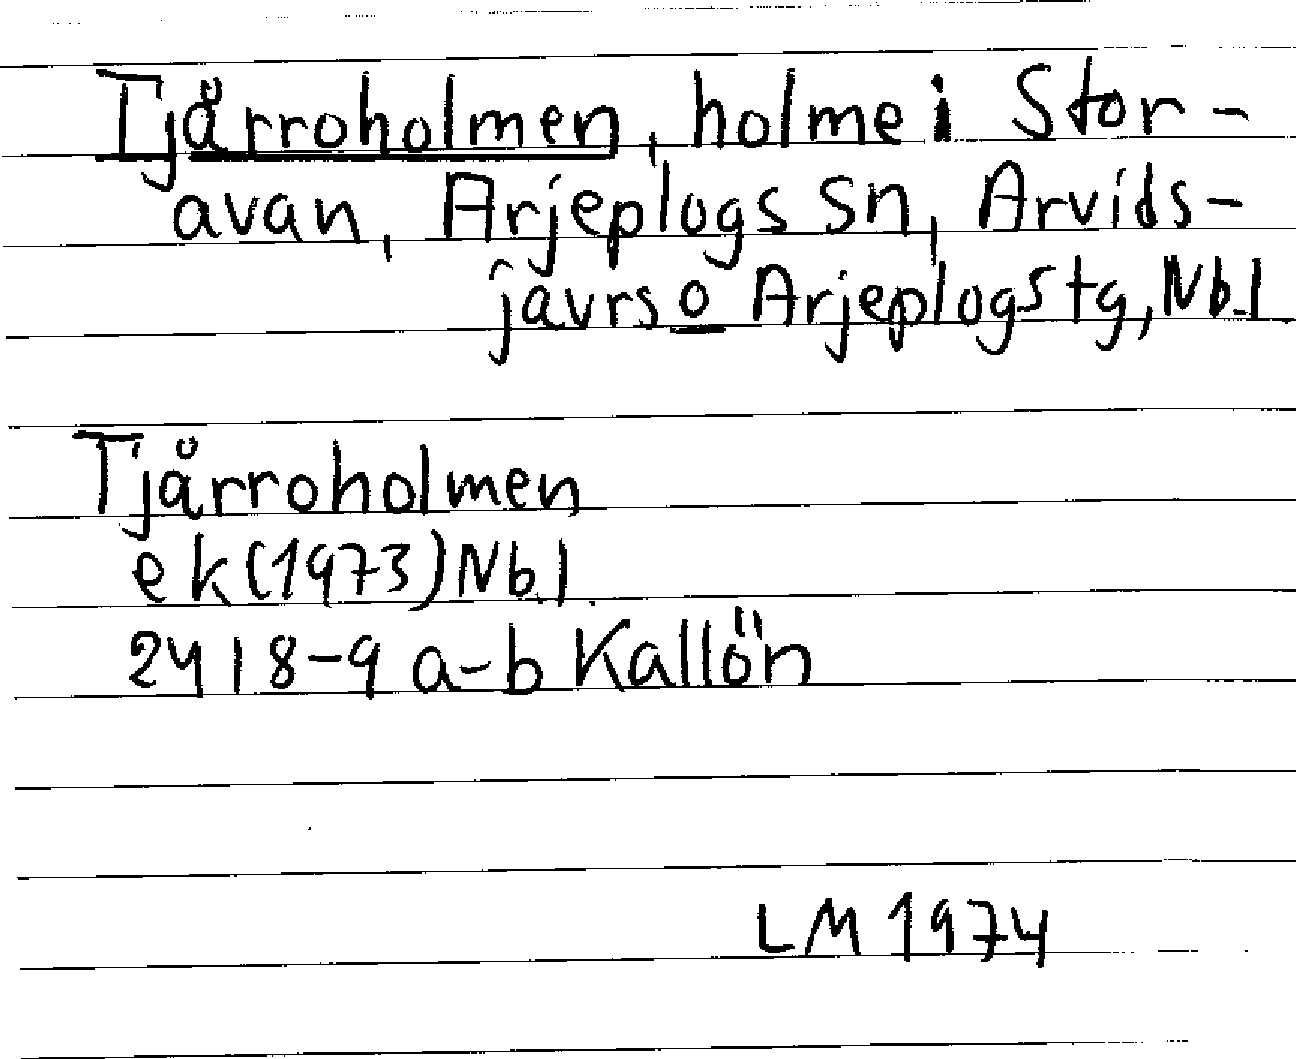 Tjårroholmen, holme i Stor-
avan, Arjeplogs sn, Arvids-
javrs o Arjeplogs tg, Nb.l
Tjårroholmen
ek (1973) Nb.l.
24 I 8-9 a-b Kallön
LM 1974